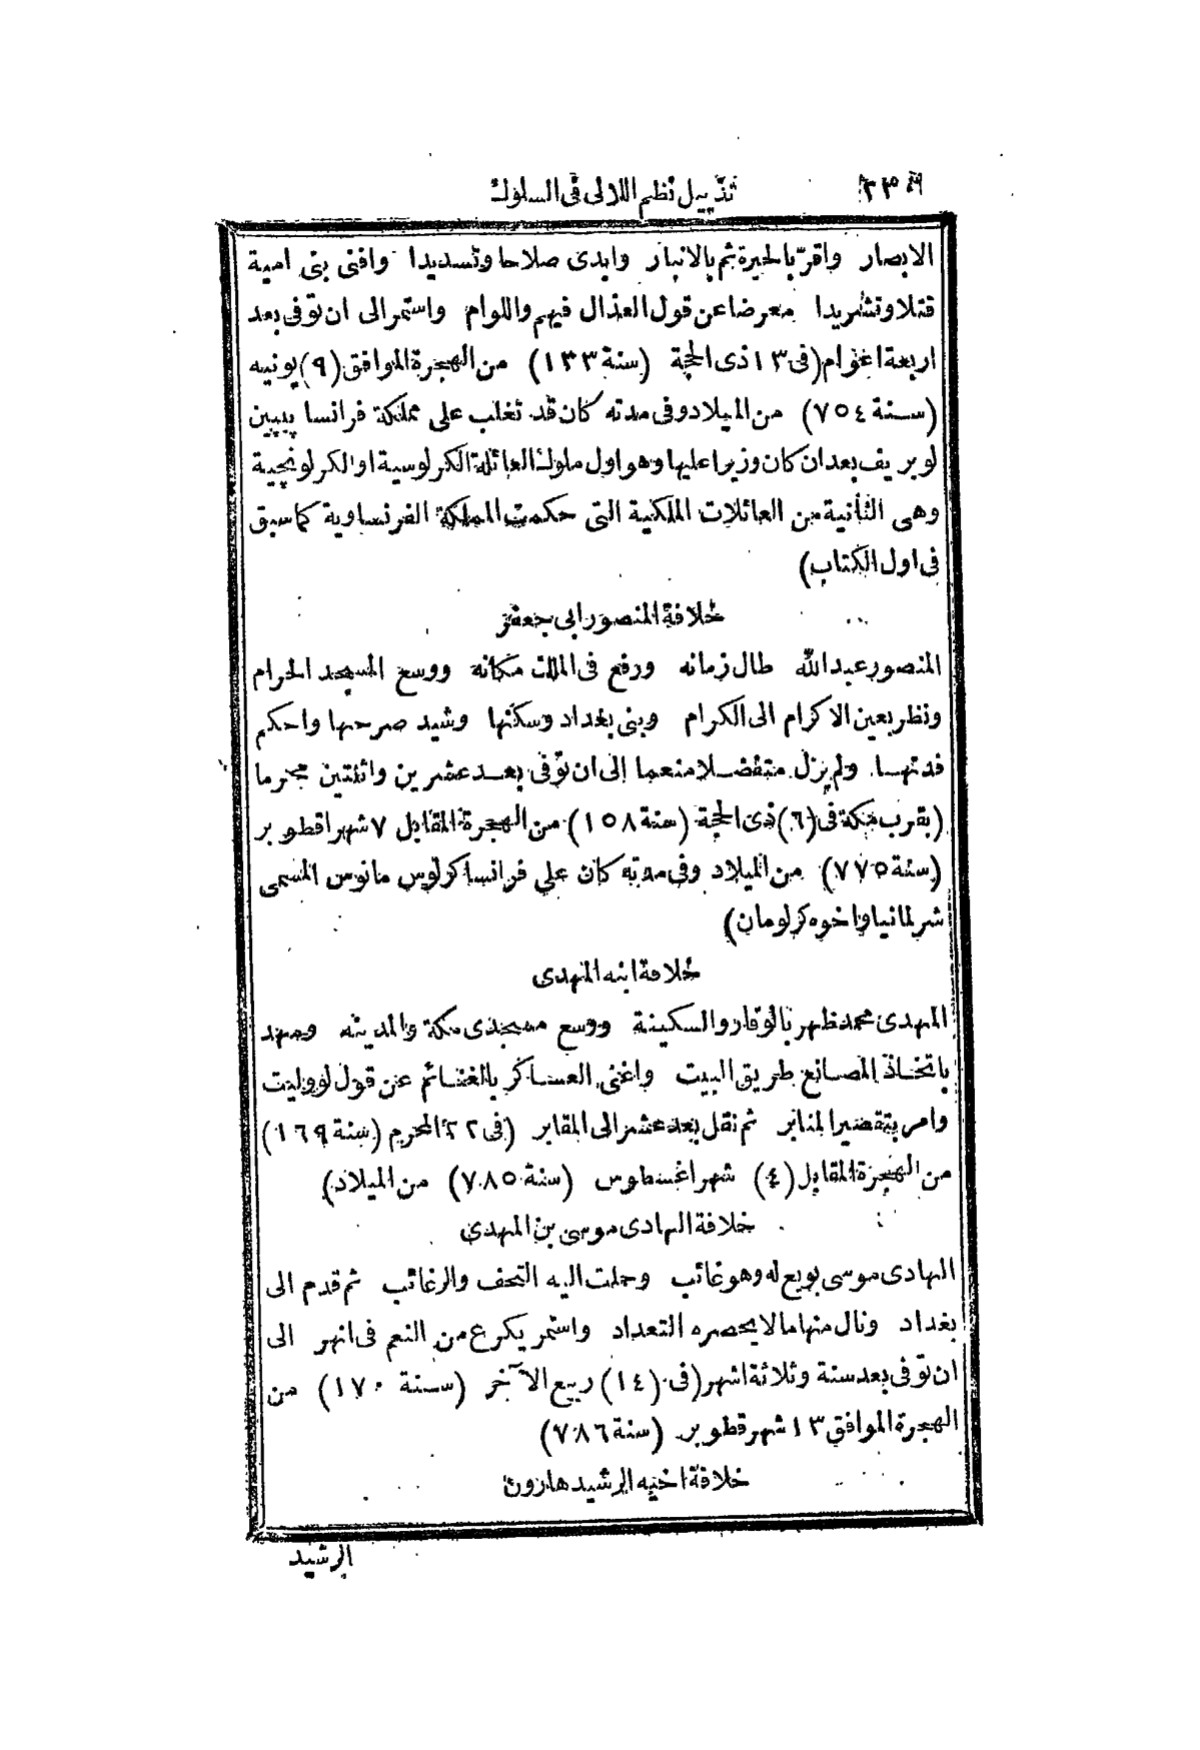 تذييل نظم اللالى فى السلوك
الابصار واقر بالحيرة ثم بالانبار وابدى صلاحا وتسديدا وافنى بنى امية
قتلا وتشريدا معرضا عن قول العذال فيهم واللوام واستمر الى ان توفى بعد
اربعة اعوام (فى ١٣ ذى الحجة (سنة ١٣٣) من الهجرة الموافق (٩) يونيه
(سنة ٧٥٤) من الميلاد وفى مدته كان قد تغلب على مملكة فرانسا پيپين
لو بريف بعد ان كان وزيرا عليها وهو اول ملوك العائلة الكرلوسية او الكرلونجية
وهى الثانية من العائلات الملكية التى حكمت المملكة الفرنساوية كما سبق
فى اول الكتاب)
خلافة المنصور ابى جعفر
المنصور عبد الله طال زمانه ورفع فى الملك مكانه ووسع المسجد الحرام
ونظر بعين الاكرام الى الكرام وبنى بغداد وسكنها وشيد صرحها واحكم
فدنها ولم يزل متفضلا منعما الى ان توفى بعد عشرين واثنتين محرما
(بقرب مكة فى (٦) ذى الحجة (سنة ١٥٨) من الهجرة المقابل ٧ شهر اقطوبر
(سنة ٧٧٥) من الميلاد وفى مدته كان على فرانسا كرلوس مانوس المسمى
شرلمانيا واخوه كرلومان)
خلافة ابنه المهدى
المهدى محمد ظهر بالوقار والسكينة ووسع مسجدى مكة والمدينه ومهد
باتخاذ المصانع طريق البيت واغنى العساكر بالغنائم عن قول لو وليت
وامر بتقصير المنابر ثم نقل بعد عشر الى المقابر (فى ٢٢ المحرم (سنة ١٦٩)
من الهجرة المقابل (٤) شهر اغسطوس (سنة ٧٨٥) من الميلاد)
خلافة الهادى موسى بن المهدى
الهادى موسى بويع له وهو غائب وحملت اليه التحف والرغائب ثم قدم الى
بغداد ونال منها ما لا يحصره التعداد واستمر يكرع من النعم فى انهر الى
ان توفى بعد سنة وثلاثة اشهر (فى (١٤) ربيع الآخر (سنة ١٧٠) من
الهجرة الموافق ١٣ شهر قطوبر (سنة ٧٨٦)
خلافة اخيه الرشيد هارون
الرشيد